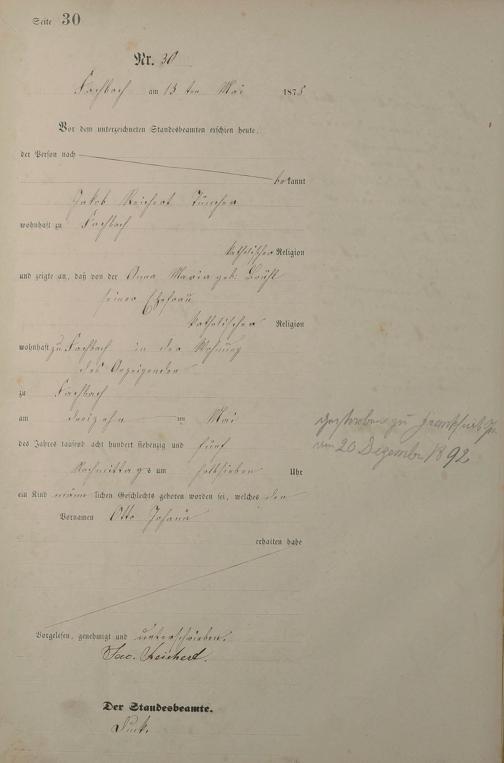 Seite 30
Nr. 30
Fachbach am 13 ten Mai 1875
Vor dem unterzeichneten Standesbeamten erschien heute,
der Person nach
bekannt
Jakob Reichert Tüncher
wohnhaft zu Fachbach
katholischer Religion
und zeigte an, daß von der Anna Maria geb: Brühl
seiner Ehefrau
katholischer Religion
wohnhaft zu Fachbach in der Wohnung
des Anzeigenden
zu Fachbach
am dreizehn im Mai
des Jahres tausend acht hundert siebenzig und fünf
Nachmittags um halbsieben Uhr
ein Kind männlichen Geschlechts geboren worden sei, welches den
Vornamen Otto Johann
erhalten habe
gestorben zu Frankfurt
am 20 Dezember 1892
Vorgelesen, genehmigt und unterschrieben.
Jac. Reichert.
Der Standesbeamte.